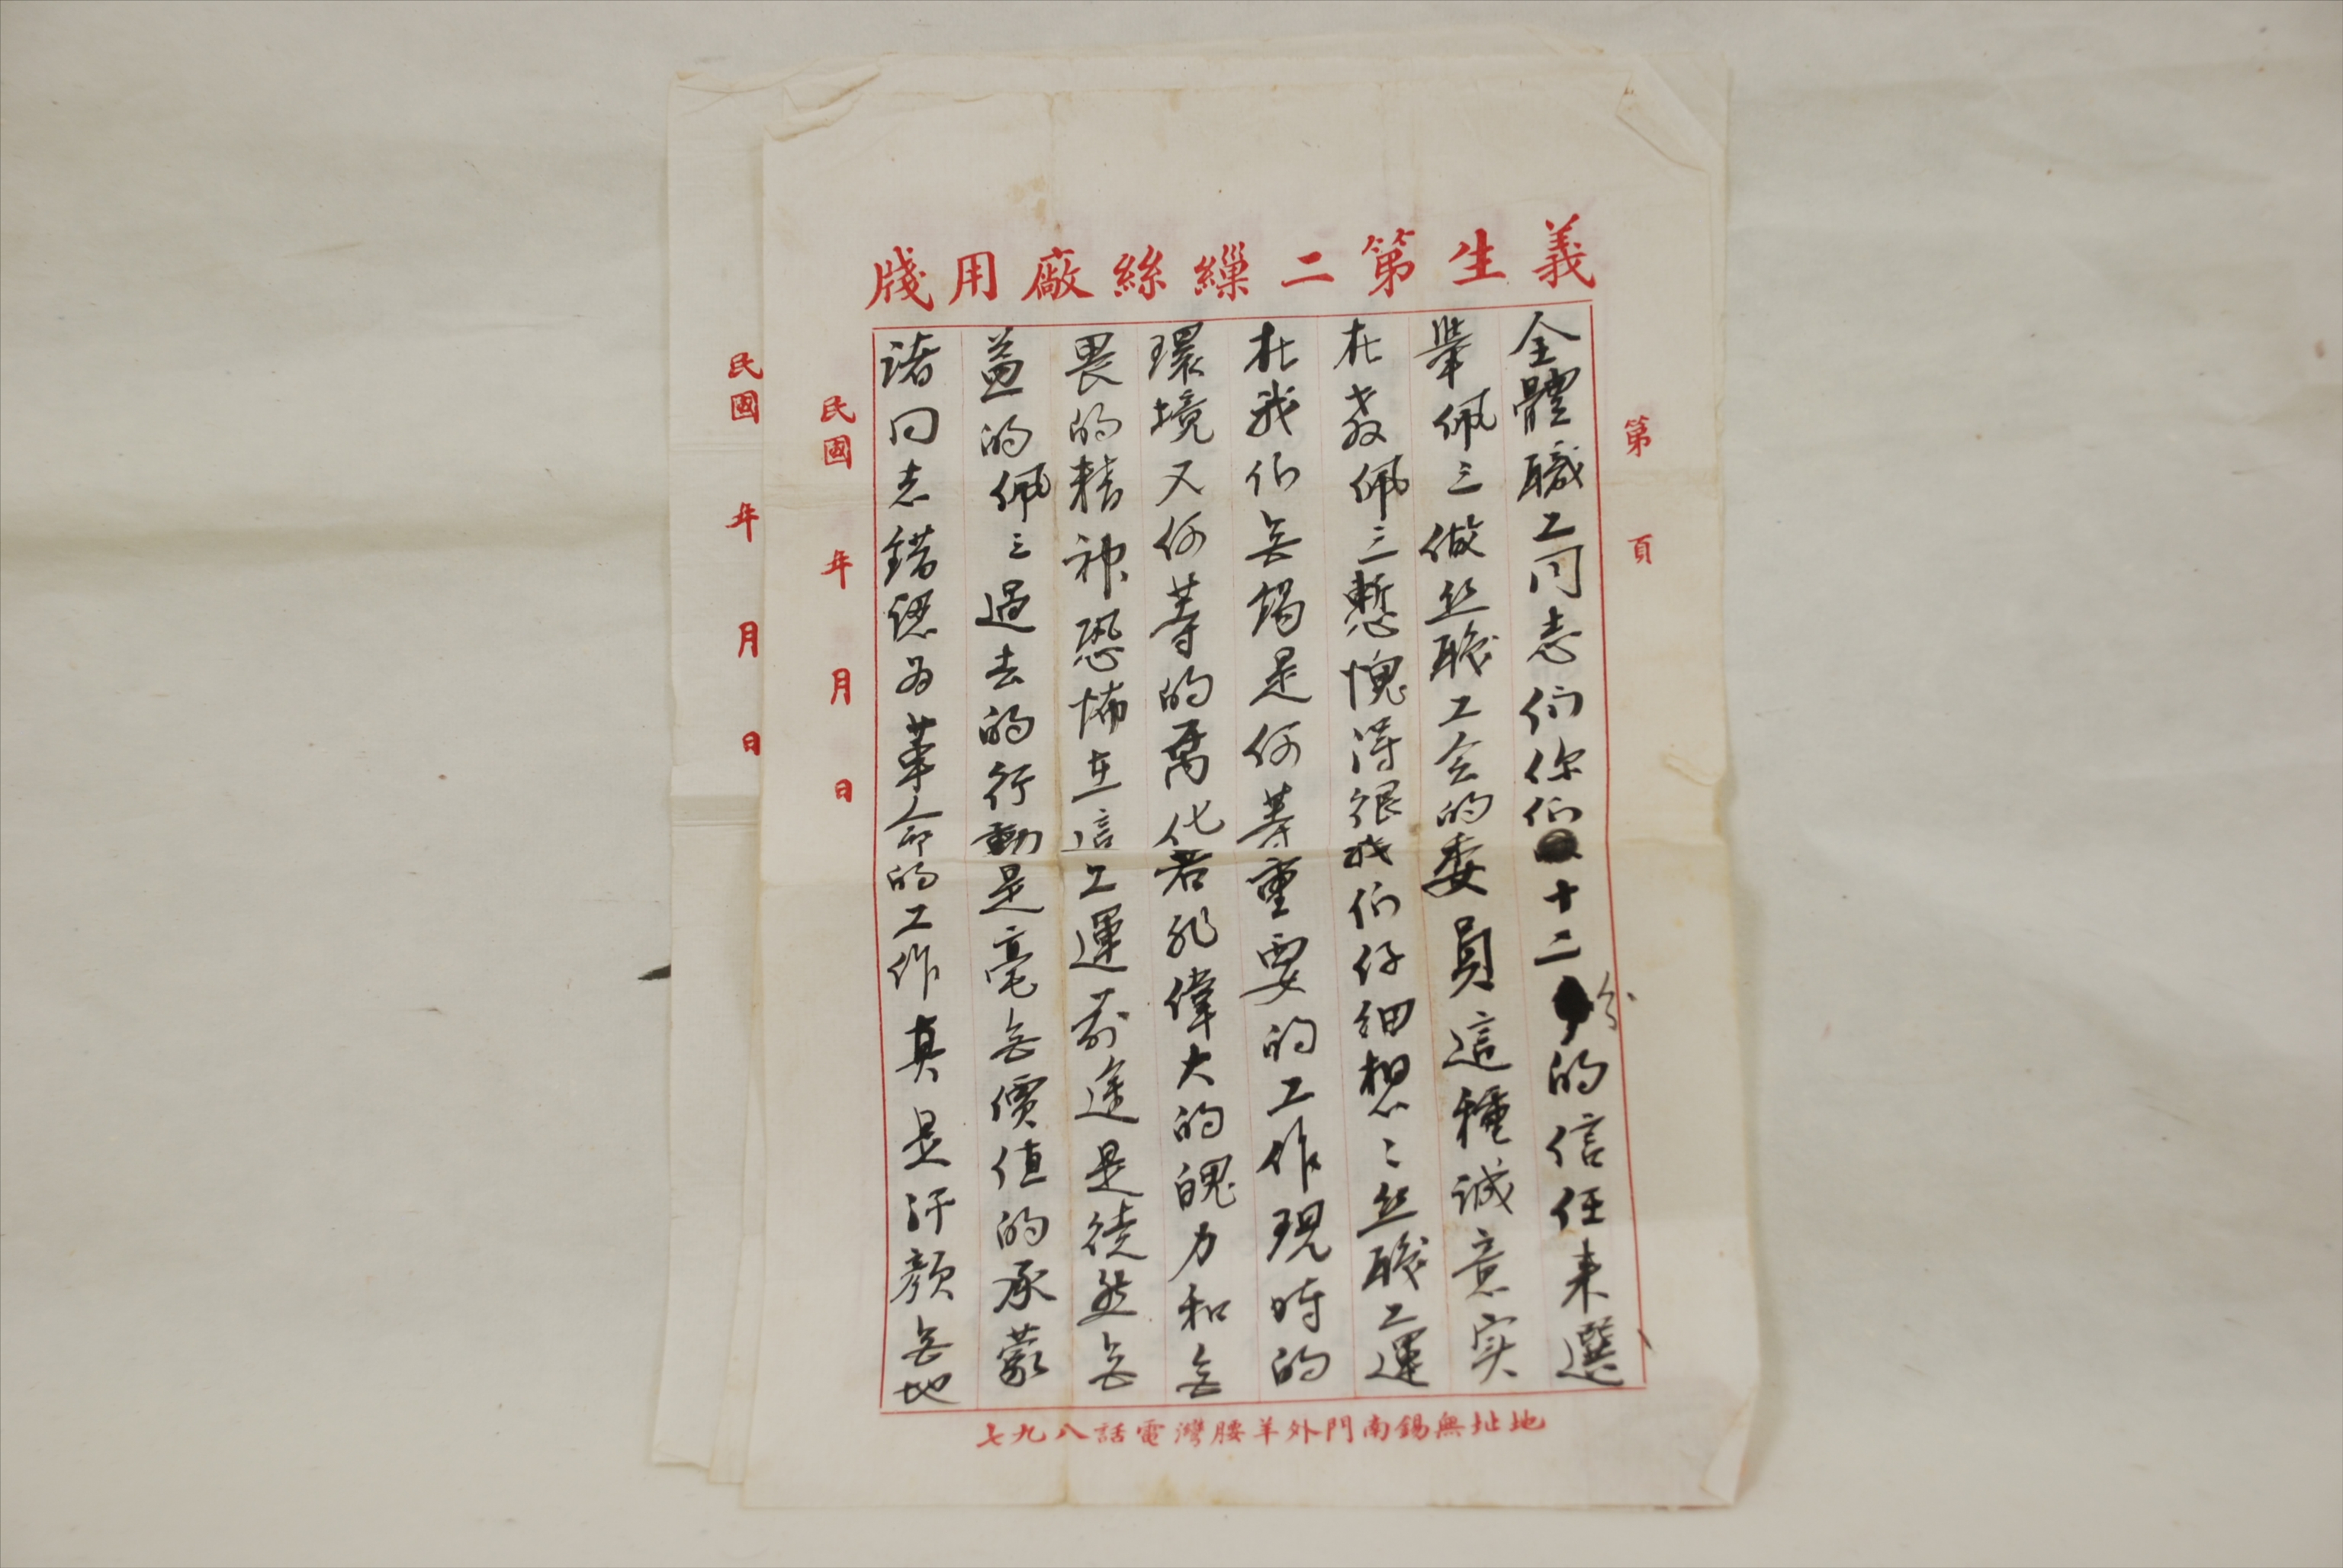 義生第二繅絲廠用牋
第 頁
全體職工同志们你们十二分的信任来選
舉佩三做丝職工会的委員這種誠意实
在教佩三慙愧得很我们仔细想〻丝職工運
在我们無錫是何等重要的工作現時的
環境又何等的惡化若非偉大的魄力和無
畏的精神恐怖在這工運前途是徒然無
益的佩三過去的行動是毫無價值的承蒙
诸同志錯認为革命的工作真是汗顏無地
民國 年 月 日
民國 年 月 日
地址無錫南門外羊腰灣電話八九七